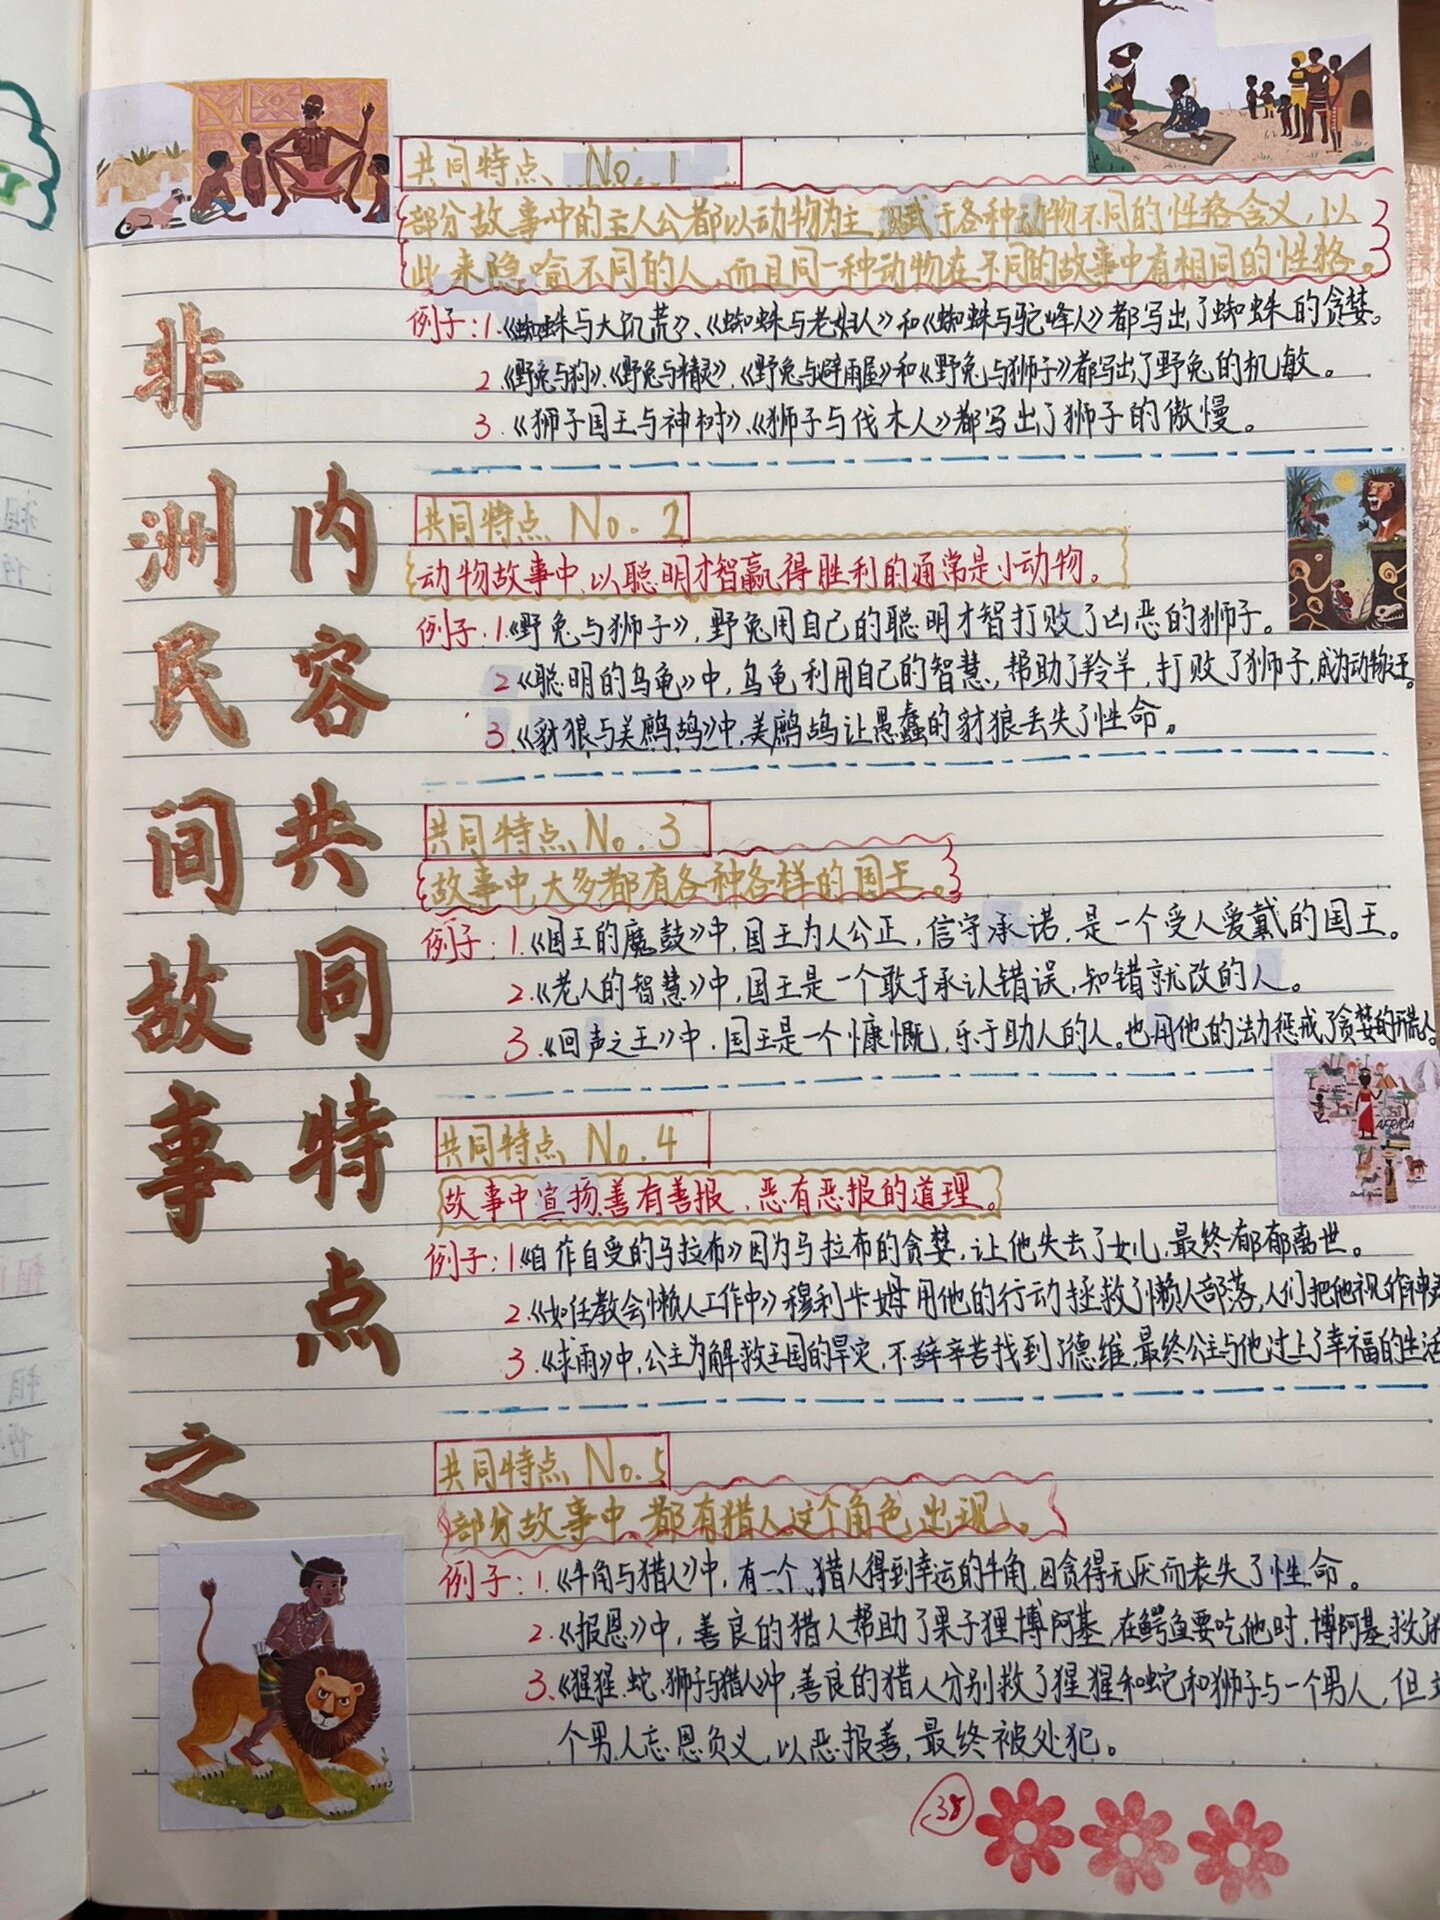 非洲民间故事之
内容共同特点
共同特点 No. 1
部分故事中的主人公都以动物为主,赋于各种动物不同的性格含义,以
此来隐喻不同的人,而且同一种动物在不同的故事中有相同的性格。
例子:1.《蜘蛛与大饥荒》、《蜘蛛与老妇人》和《蜘蛛与驼峰人》都写出了蜘蛛的贪婪。
2.《野兔与狗》、《野兔与精灵》、《野兔与避雨屋》和《野兔与狮子》都写出了野兔的机敏。
3.《狮子国王与神树》、《狮子与伐木人》都写出了狮子的傲慢。
共同特点 No. 2
动物故事中,以聪明才智赢得胜利的通常是小动物。
例子:1.《野兔与狮子》,野兔用自己的聪明才智打败了凶恶的狮子。
2.《聪明的乌龟》中,乌龟利用自己的智慧,帮助了羚羊,打败了狮子,成为动物之王。
3.《豺狼与美鹧鸪》中,美鹧鸪让愚蠢的豺狼丢失了性命。
共同特点 No. 3
故事中,大多都有各种各样的国王。
例子:1.《国王的魔鼓》中,国王为人公正,信守承诺,是一个受人爱戴的国王。
2.《老人的智慧》中,国王是一个敢于承认错误,知错就改的人。
3.《回声之王》中,国王是一个慷慨,乐于助人的人。也用他的法力惩戒了贪婪的
AFRICA
South Africa
共同特点 No. 4
故事中宣扬善有善报,恶有恶报的道理。
例子:1《自作自受的马拉布》因为马拉布的贪婪,让他失去了女儿,最终郁郁离世。
2.《如何教会懒人工作中》穆利卡姆用他的行动拯救了懒人部落,人们把他视作神
3.《求雨》中,公主为解救王国的旱灾,不辞辛苦找到了德维,最终公主与他过上了幸福的生活
共同特点 No. 5
部分故事中,都有猎人这个角色出现。
例子:1.《牛角与猎人》中,有一个猎人得到幸运的牛角,因贪得无厌而丧失了性命。
2.《报恩》中,善良的猎人帮助了果子狸博阿基,在鳄鱼要吃他时,博阿基救
3.《猩猩、蛇、狮子与猎人》中,善良的猎人分别救了猩猩和蛇和狮子与一个男人,但
个男人忘恩负义,以恶报善,最终被处犯。
38